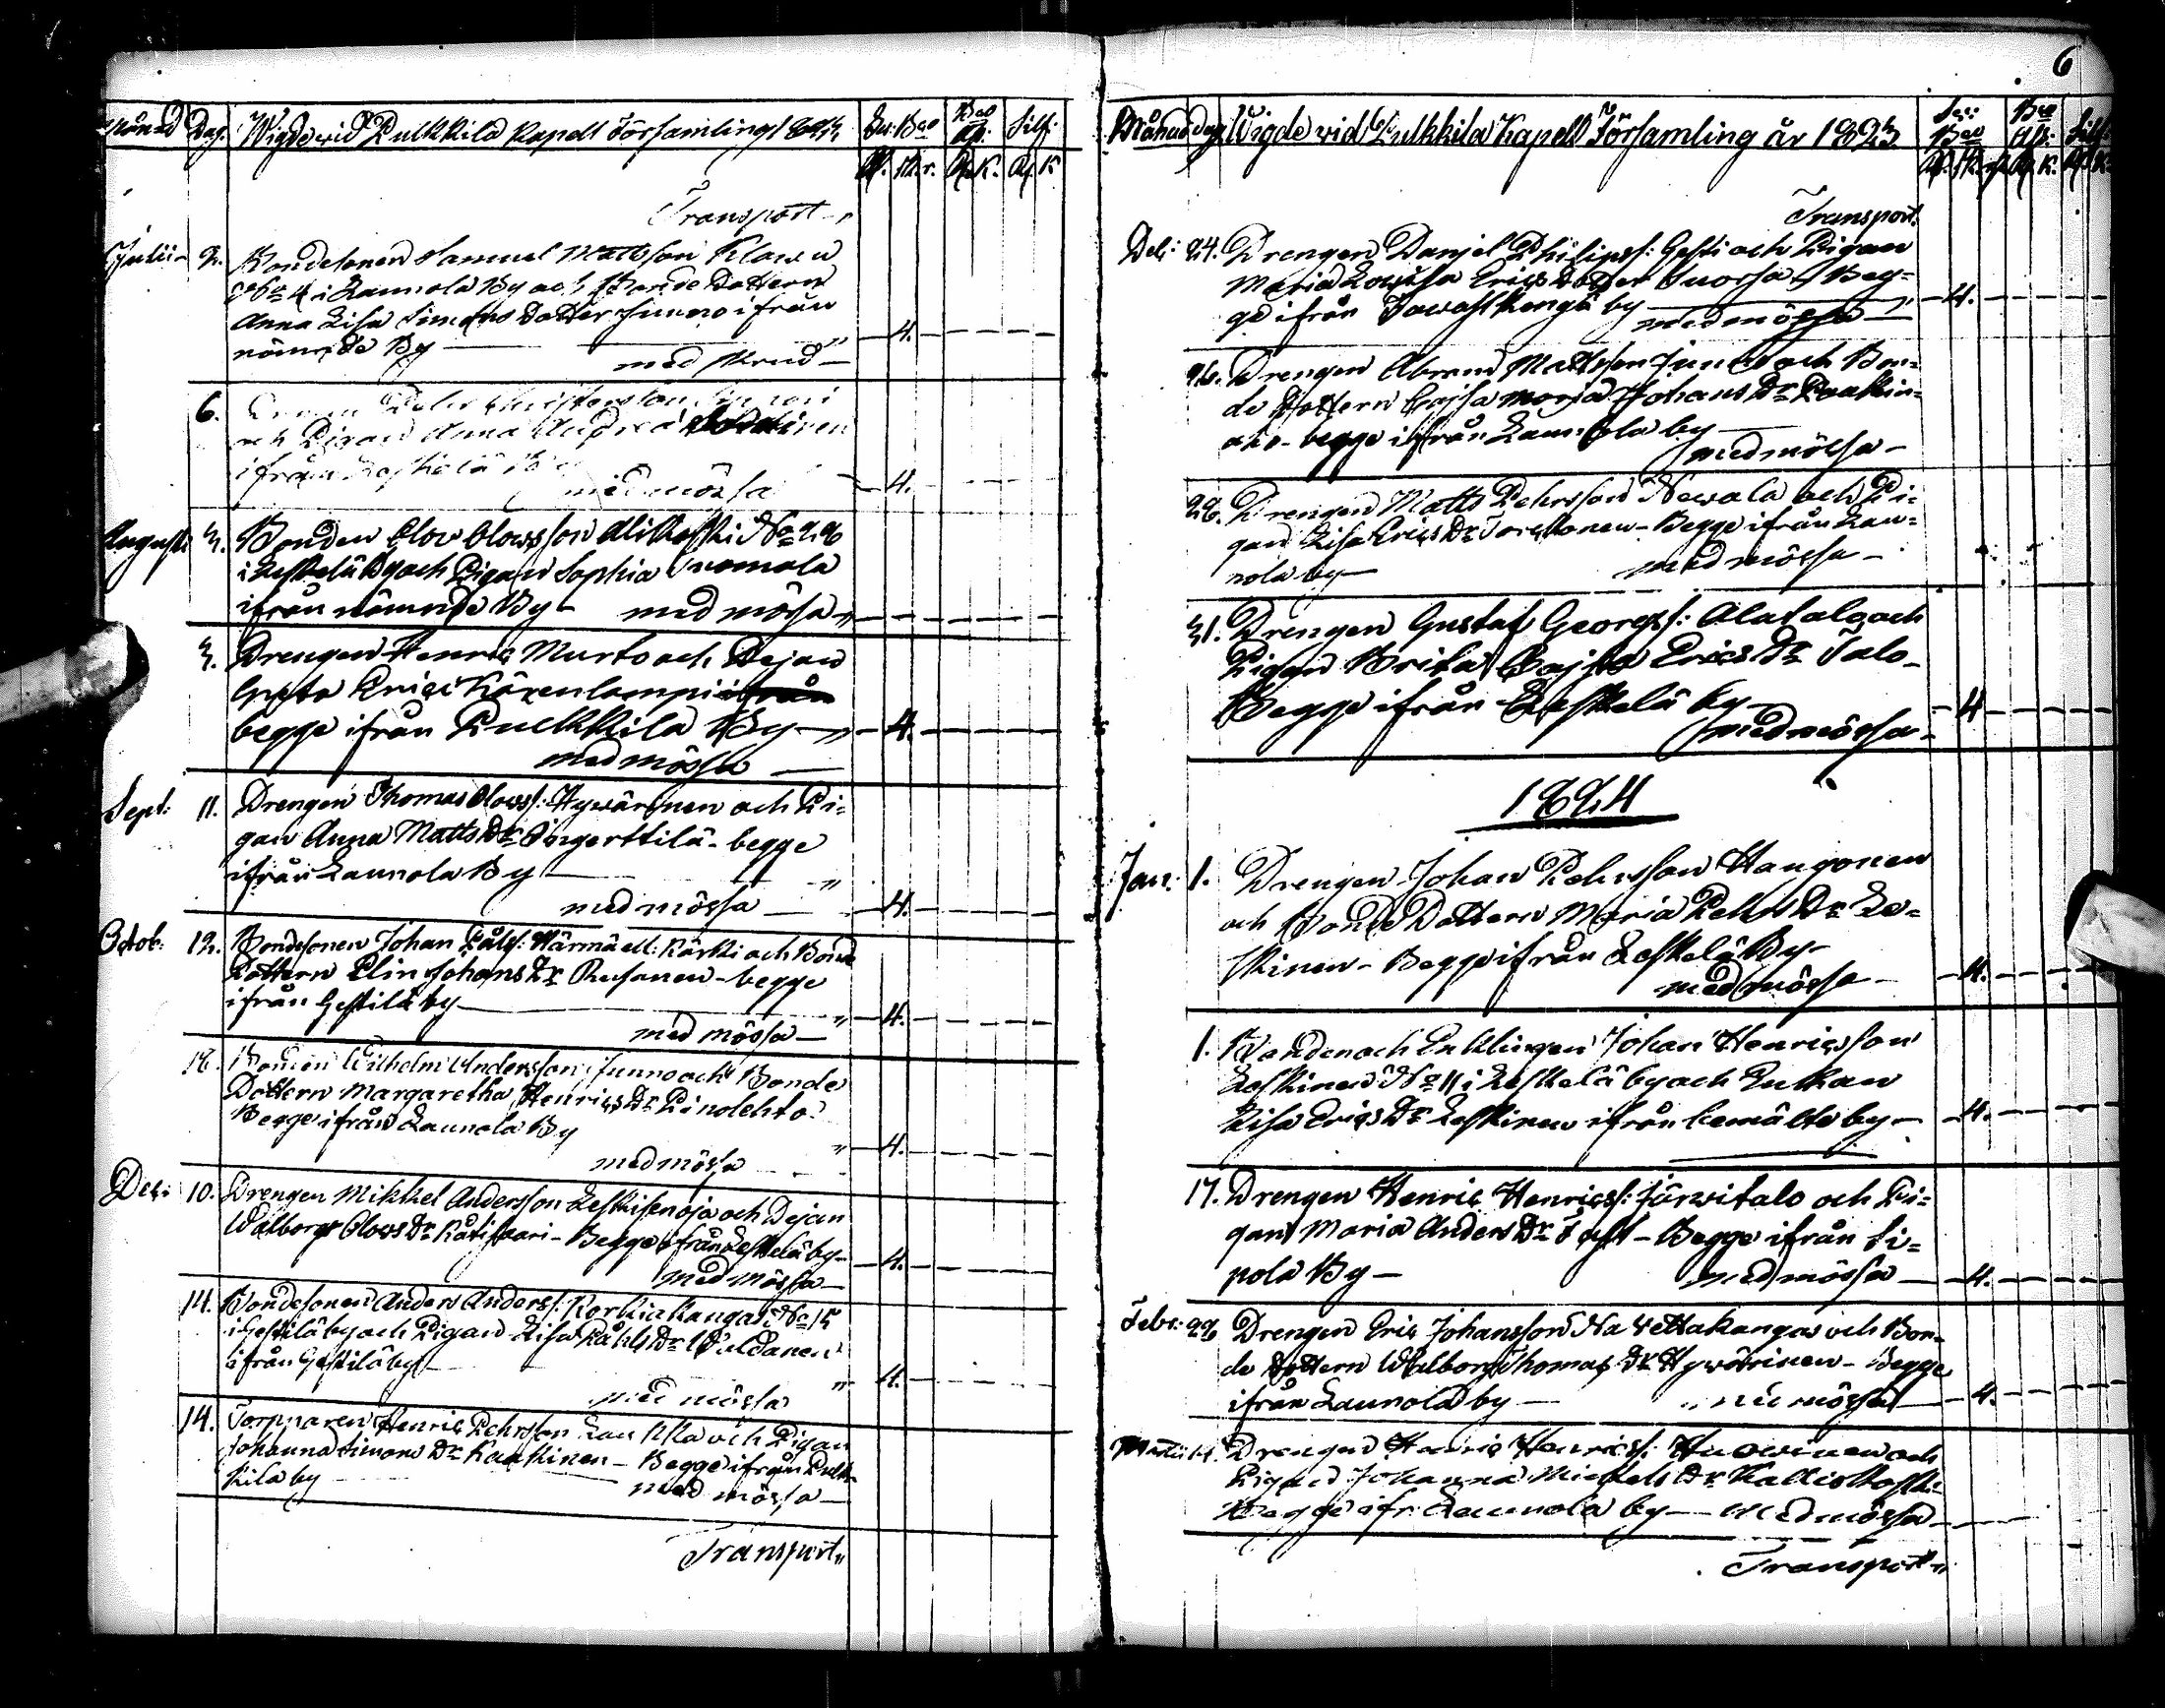 Månad Dag. Wigde wid Pulkkila Kapell Församling 1823
Sv. Bco Bco Silf.
R. sk. r. R. K. R. K
Transport „
Julii 2. Bondesonen Samuel Mattsson Klawu
No 4 i Laurola By och Bonde Dottern
Anna Lisa Simons Dotter Junno ifrån
nämnde By —
med skrud — 4.
6.
och Pigan Anna
ifrån Leskelä By
med mössa 4.
Augusti 3. Bonden Olov Olowsson Alikoski No 26
i Leskelä By och Pigan Sophia Suomala
ifrån nämnde By — med mössa „
3. Drengen Henric Murto och Dejan
Greta Erici Kärenlampi
begge ifrån Pulkkila By — „ 4.
med mössa —
Sept: 11. Drengen Thomas Olowss: Hywärinen och Pi=
gan Anna Matts Dr Ingerttilä - begge
ifrån Launola By — „
med mössa — 4.
Octob: 12. Bondesonen Johan Påls: Härmä ell: Kärki och Bonde
Dottern Elin Johans Dr Rusanen - begge
ifrån Gestilä by — „ 4.
med mössa —
16. Bonden Wilhelm Andersson Junno och Bonde
Dottern Margaretha Henrics Dr Pinolehto
Begge ifrån Launola By „ 4.
med mössa
Dec: 10. Drengen Mikkel Andersson Leskisenoja och Dejan
Walborg Olows Dr Rätisaari - Begge ifrån Leskelä by — 4.
med mössa —
14. Bondesonen Anders Anderss: Korkiakangas No 15
i Gestilä by och Pigan Lisa Påhls Dr
ifrån Gestilä by — „ 4.
med mössa
14. Torpparen Henric Pehrsson och Pigan
Johanna Simons Dr Kaakinen — Begge ifrån Pulk=
kila by —
med mössa —
Transport „
6
Månad dag. Wigde wid Pulkkila Kapell Församling år 1823
Sv: Bco Bco Ass: Silf.
Transport.
Dec: 24. Drengen Danjel Philipss: Gesti och Pigan
Maria Lowisa Erics Dotter Suorsa Beg=
ge ifrån Jawaskengä by — „ 4.
med mössa —
26. Drengen Abram Mattsson Junno och Bon=
de Dottern Cajsa Maria Johans Dr Raakin=
aho - begge ifrån Launola by —
med mössa —
26. Drengen Matts Pehrsson Newala och Pi=
gan Lisa Erics Dr Toreskonen - Begge ifrån Lau=
nola by —
med mössa —
31. Drengen Gustaf Georgss: Alatalo och
Pigan Brita Cajsa Erics Dr Talo —
Begge ifrån Leskelä by — 4
med mössa —
1824
Jan: 1. Drengen Johan Pehrsson Haugonen
och Bonde Dottern Maria Pehrs Dr Le=
skinen - Begge ifrån Leskelä By —
med mössa — 4.
1. Bonden och Enklingen Johan Henricsson
Leskinen No 11 i Leskelä by och Enkan
Lisa Erics Dr Leskinen ifrån bemälte by — 4.
17. Drengen Henric Henricss: Järwitalo och Pi=
gan Maria Anders Dr Tast — Begge ifrån Si=
pola By —
med mössa — 4.
Febr: 26 Drengen Eric Johansson Nawettakangas och Bon=
de Dottern Walborg Thomas Dr Hywärinen — Begge
ifrån Launola by — med mössa — 4.
Martii 14. Drengen Henric Henricss: Huowinen och
Pigan Johanna Mickels Dr Kalliokoski
Begge ifr: Launola by — med mössa —
Transport „